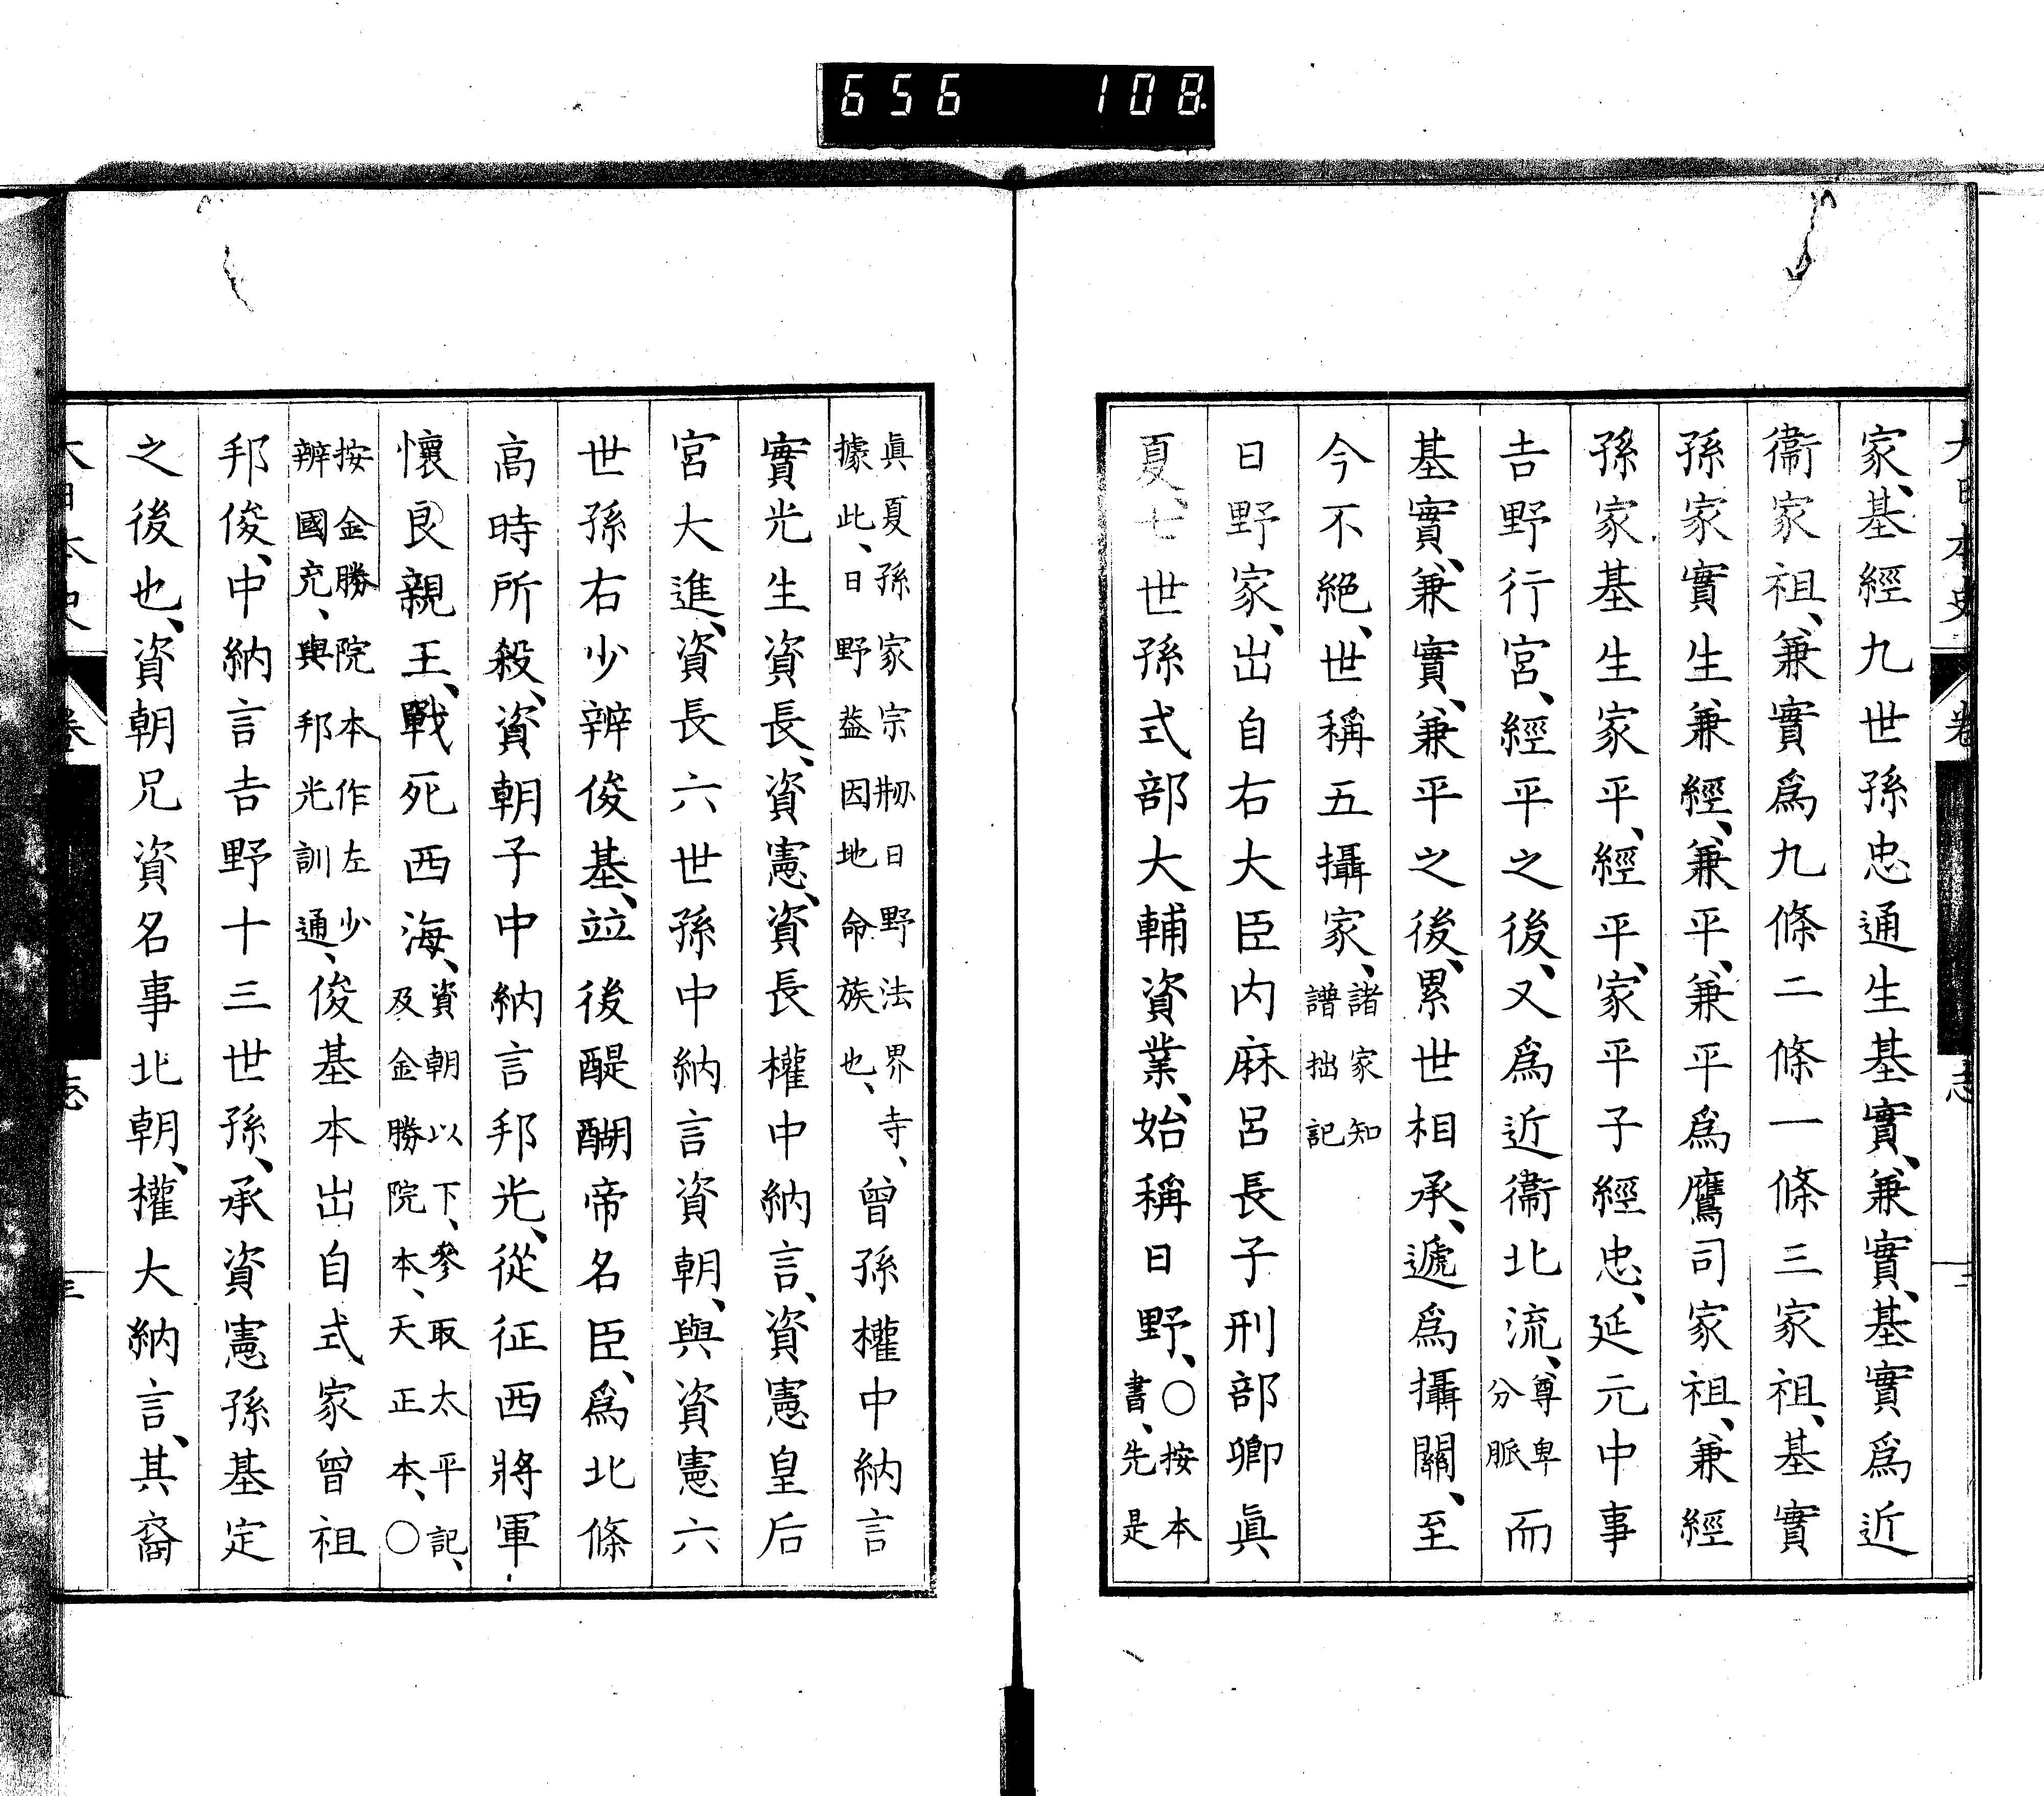 656 108
家、基經九世孫忠通生基實、兼實、基實爲近
衞家祖、兼實爲九條二條一條三家祖、基實
孫家實生兼經、兼平、兼平爲鷹司家祖、兼經
孫家基生家平、經平、家平子經忠、延元中事
吉野行宮、經平之後、又爲近衞北流、尊卑分脈而
基實、兼實、兼平之後、累世相承、遞爲攝關、至
今不絕、世稱五攝家、諸家知譜拙記
日野家、出自右大臣内麻呂長子刑部卿眞
夏、七世孫式部大輔資業、始稱日野、○按本書、先是
眞夏孫家宗剏日野法界寺、據此、日野益因地命族也、曾孫權中納言
實光生資長、資憲、資長權中納言、資憲皇后
宮大進、資長六世孫中納言資朝、與資憲六
世孫右少辨俊基、竝後醍醐帝名臣、爲北條
高時所殺、資朝子中納言邦光、從征西將軍
懷良親王、戰死西海、資朝以下、參取太平記、及金勝院本、天正本、○
按金勝院本作左少辨國充、與邦光訓通、俊基本出自式家曾祖
邦俊、中納言吉野十三世孫、承資憲孫基定
之後也、資朝兄資名事北朝、權大納言、其裔